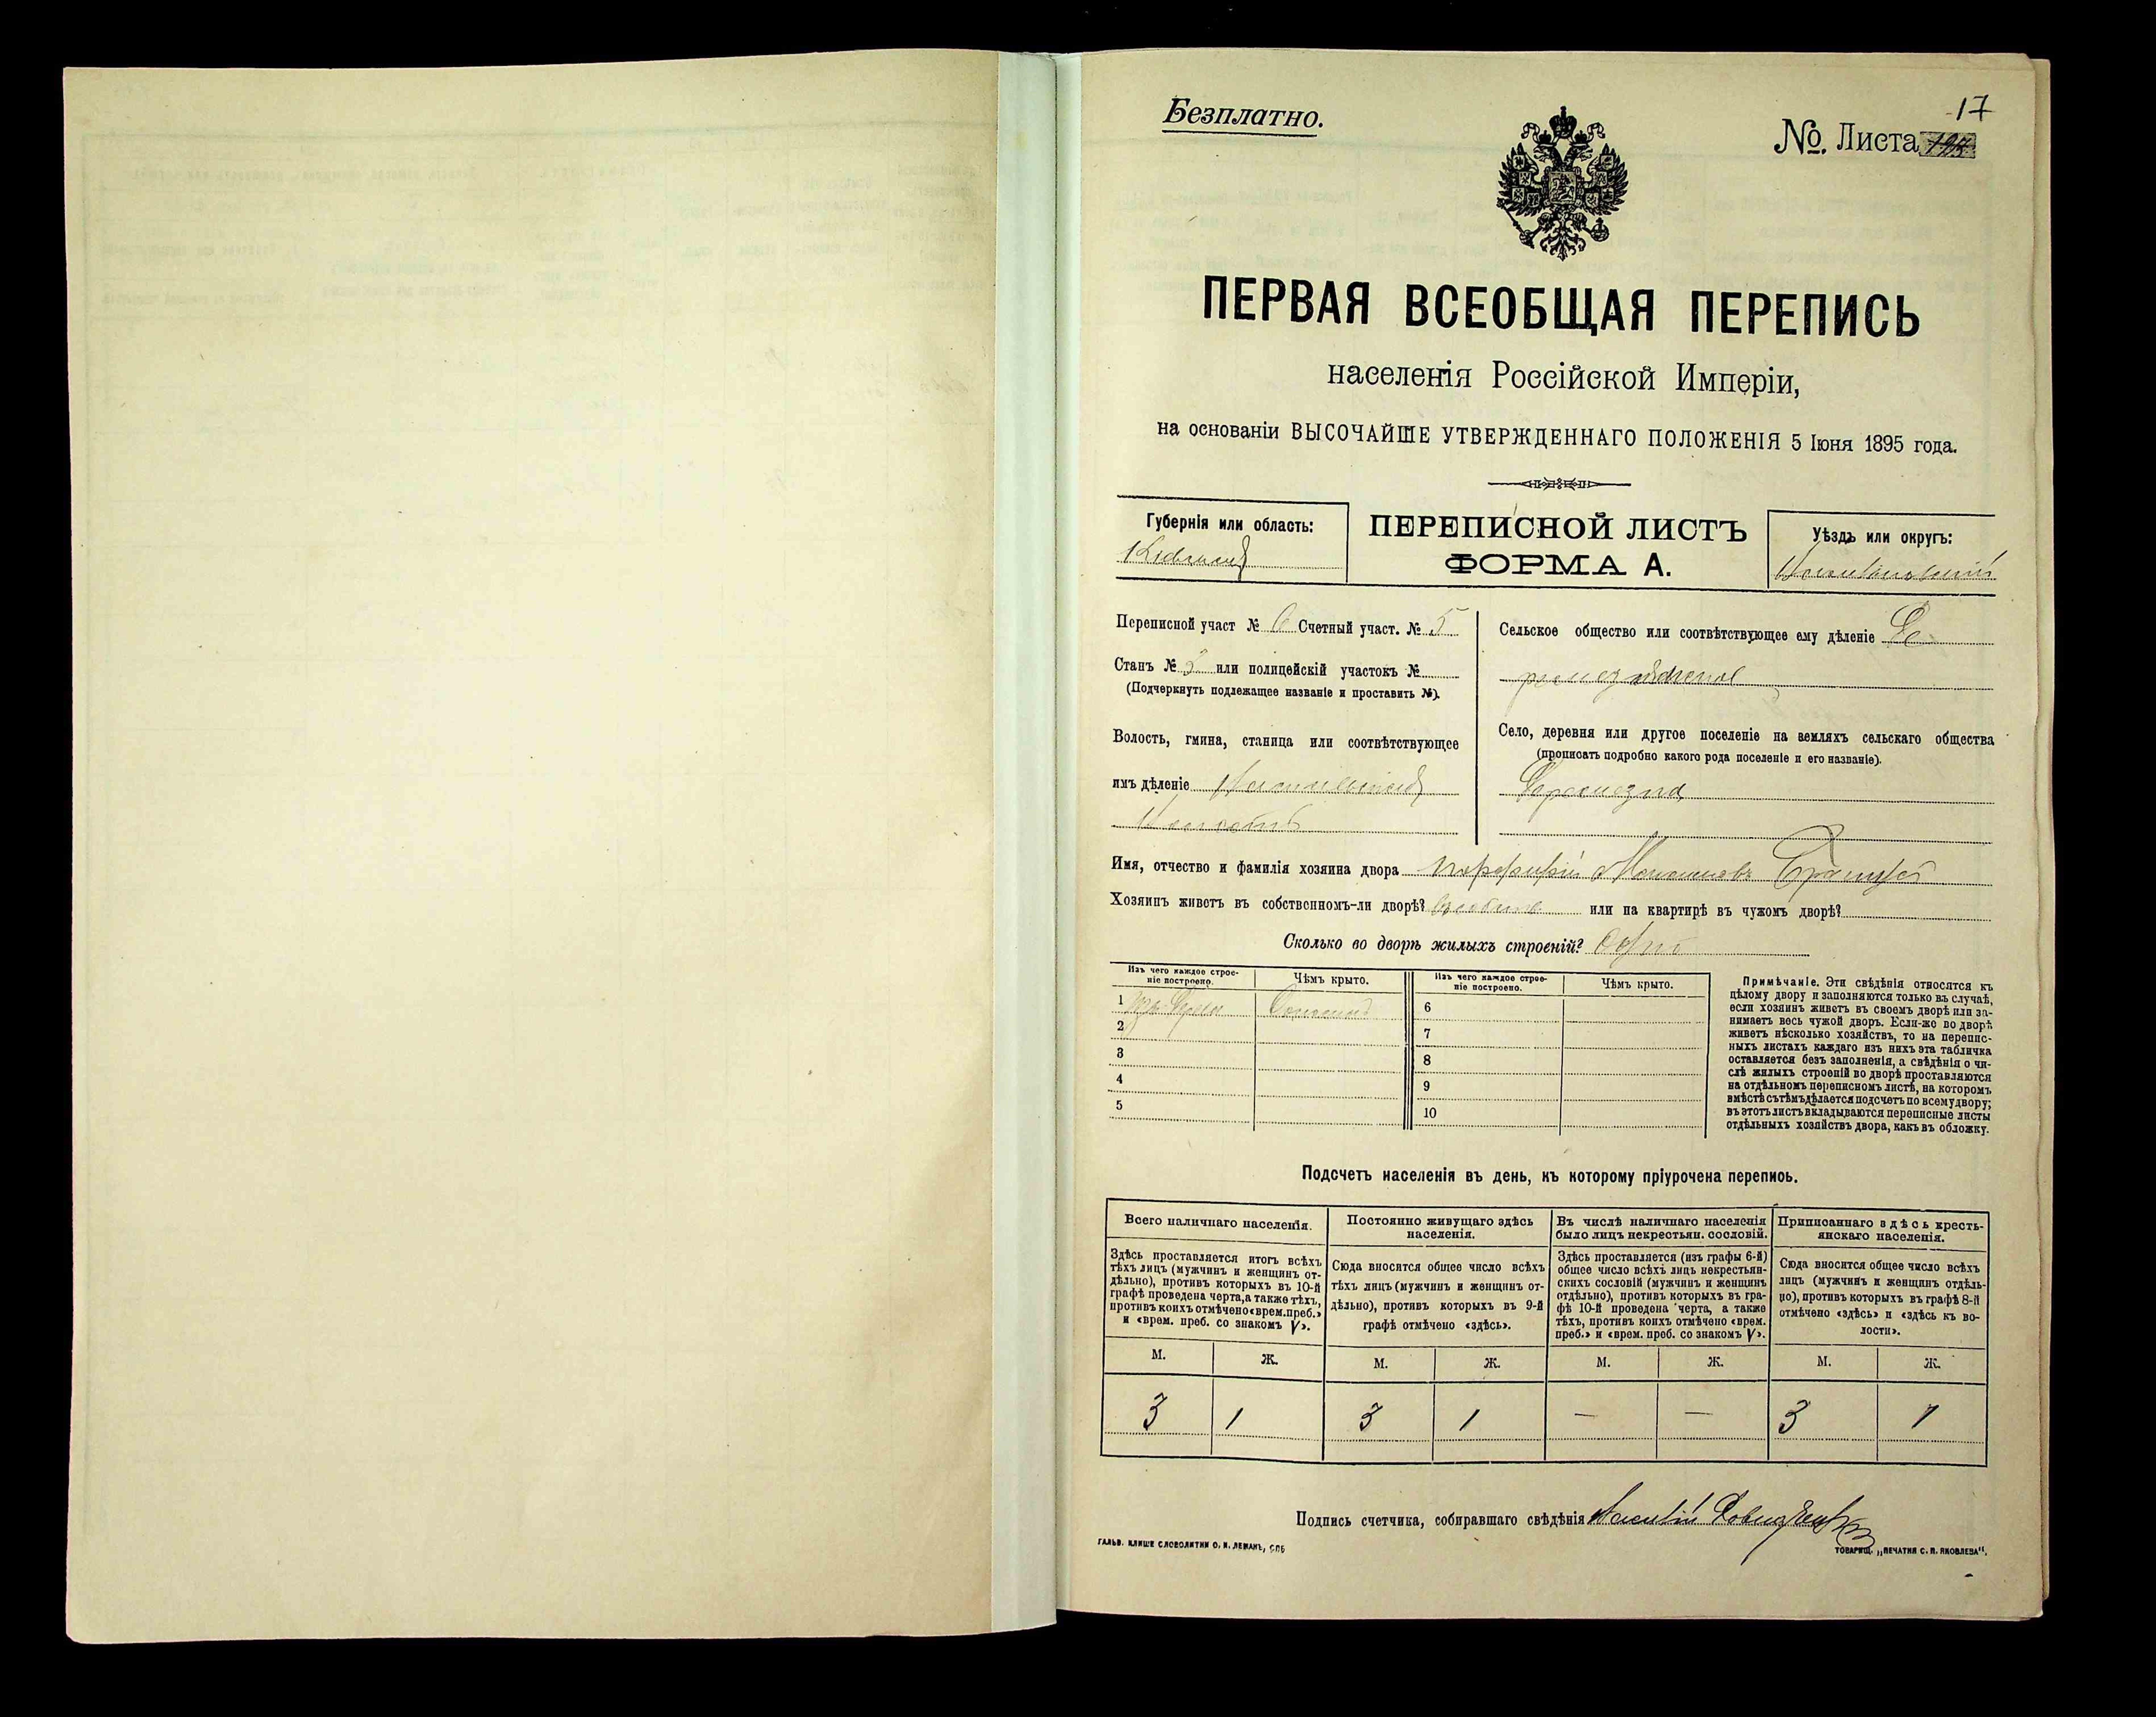 Безплатно.
17
№. Листа
ПЕРВАЯ ВСЕОБЩАЯ ПЕРЕПИСЬ
населенія Россійской Имперіи,
на основаніи ВЫСОЧАЙШЕ УТВЕРЖДЕННАГО ПОЛОЖЕНІЯ 5 Іюня 1895 года.
Губернія или область:
Кіевская
ПЕРЕПИСНОЙ ЛИСТЪ
ФОРМА А.
Уѣздъ или округъ:
Переписной участ № 6 Счетный участ. № 5
Станъ № 3 или полицейскій участокъ №
(Подчеркнуть подлежащее названіе и проставить №).
Волость, гмина, станица или соотвѣтствующее
имъ дѣленіе
Сельское общество или соотвѣтствующее ему дѣленіе
Село, деревня или другое поселеніе на земляхъ сельскаго общества
(прописать подробно какого рода поселеніе и его названіе).
Имя, отчество и фамилія хозяина двора Порфирій
Хозяинъ живетъ въ собственномъ-ли дворѣ? или на квартирѣ въ чужомъ дворѣ?
Сколько во дворѣ жилыхъ строеній? Одно
Изъ чего каждое строе-
ніе построено.
Чѣмъ крыто.
Изъ чего каждое строе-
ніе построено.
Чѣмъ крыто.
1 Изъ дерева Соломой
2
3
4
5
6
7
8
9
10
Примѣчаніе. Эти свѣдѣнія относятся къ
цѣлому двору и заполняются только въ случаѣ,
если хозяинъ живетъ въ своемъ дворѣ или за-
нимаетъ весь чужой дворъ. Если-же во дворѣ
живетъ нѣсколько хозяйствъ, то на перепис-
ныхъ листахъ каждаго изъ нихъ эта табличка
оставляется безъ заполненія, а свѣдѣнія о чи-
слѣ жилыхъ строеній во дворѣ проставляются
на отдѣльномъ переписномъ листѣ, на которомъ
вмѣстѣ съ тѣмъ дѣлается подсчетъ по всему двору;
въ этотъ листъ вкладываются переписные листы
отдѣльныхъ хозяйствъ двора, какъ въ обложку.
Подсчетъ населенія въ день, къ которому пріурочена перепись.
Всего наличнаго населенія.
Здѣсь проставляется итогъ всѣхъ
тѣхъ лицъ (мужчинъ и женщинъ от-
дѣльно), противъ которыхъ въ 10-й
графѣ проведена черта, а также тѣхъ,
противъ коихъ отмѣчено «врем. преб.»
и «врем. преб. со знакомъ V».
Постоянно живущаго здѣсь
населенія.
Сюда вносится общее число всѣхъ
тѣхъ лицъ (мужчинъ и женщинъ от-
дѣльно), противъ которыхъ въ 9-й
графѣ отмѣчено «здѣсь».
Въ числѣ наличнаго населенія
было лицъ некрестьян. сословій.
Здѣсь проставляется (изъ графы 6-й)
общее число всѣхъ лицъ некрестьян-
скихъ сословій (мужчинъ и женщинъ
отдѣльно), противъ которыхъ въ гра-
фѣ 10-й проведена черта, а также
тѣхъ, противъ коихъ отмѣчено «врем.
преб.» и «врем. преб. со знакомъ V».
Приписаннаго здѣсь кресть-
янскаго населенія.
Сюда вносится общее число всѣхъ
лицъ (мужчинъ и женщинъ отдѣль-
но), противъ которыхъ въ графѣ 8-й
отмѣчено «здѣсь» и «здѣсь къ во-
лости».
М. Ж. М. Ж. М. Ж. М. Ж.
3 1 3 1 — — 3 1
Подпись счетчика, собиравшаго свѣдѣнія
ГАЛЬВ. КЛИШЕ СЛОВОЛИТНИ О. И. ЛЕМАНЪ, СПБ
ТОВАРИЩ. „ПЕЧАТНЯ С. П. ЯКОВЛЕВА".